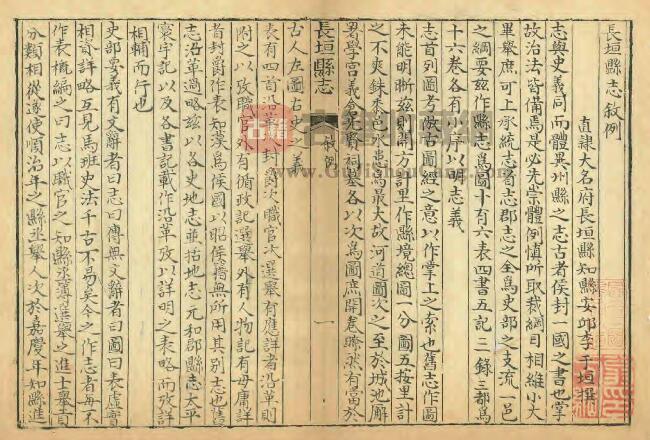 長垣縣志敘例
直隷大名府長垣縣知縣安邱李于垣撰
志與史義同而體異州縣之志古者侯封一國之書也掌
故治法皆備焉是必先崇體例慎所取裁綱目相維小大
畢舉庶可上承統志省志郡志之全爲史部之支流一邑
之綱要茲作縣志爲圖十有六表四書五記三錄三都爲
十六卷各有小序以明志義
志首列圖考倣古圖經之意以作掌上之索也舊志作圖
未能明晰茲則開方計里作縣境總圖一分圖五按里計
之不爽銖黍邑水患爲最大故河道圖次之至於城池廨
署學宮義倉先賢祠墓各以次爲圖庶開卷瞭然有當於
長垣縣志
敘例
一
古人左圖右史之義
表有四首沿革次封爵次職官次選舉有應詳者沿革則
附之以攷職官外有循政記選舉外有人物記有毋庸詳
者封爵作表如漢爲侯國以昭侯猜無所用其别志也舊
志沿革過略茲以各史地志並括地志元和郡縣志太平
寰宇記以及各書記載作沿革攷以詳明之表略而攷詳
相輔而行也
史部要義有文辭者曰志曰傳無文辭者曰圖曰表虛實
相資詳略互見馬班史法千古不易矣今之作志者每不
作表概編之曰志以職官之知縣丞簿選舉之進士舉貢
分類相從遂使順治年之縣丞舉人次於嘉慶年知縣進